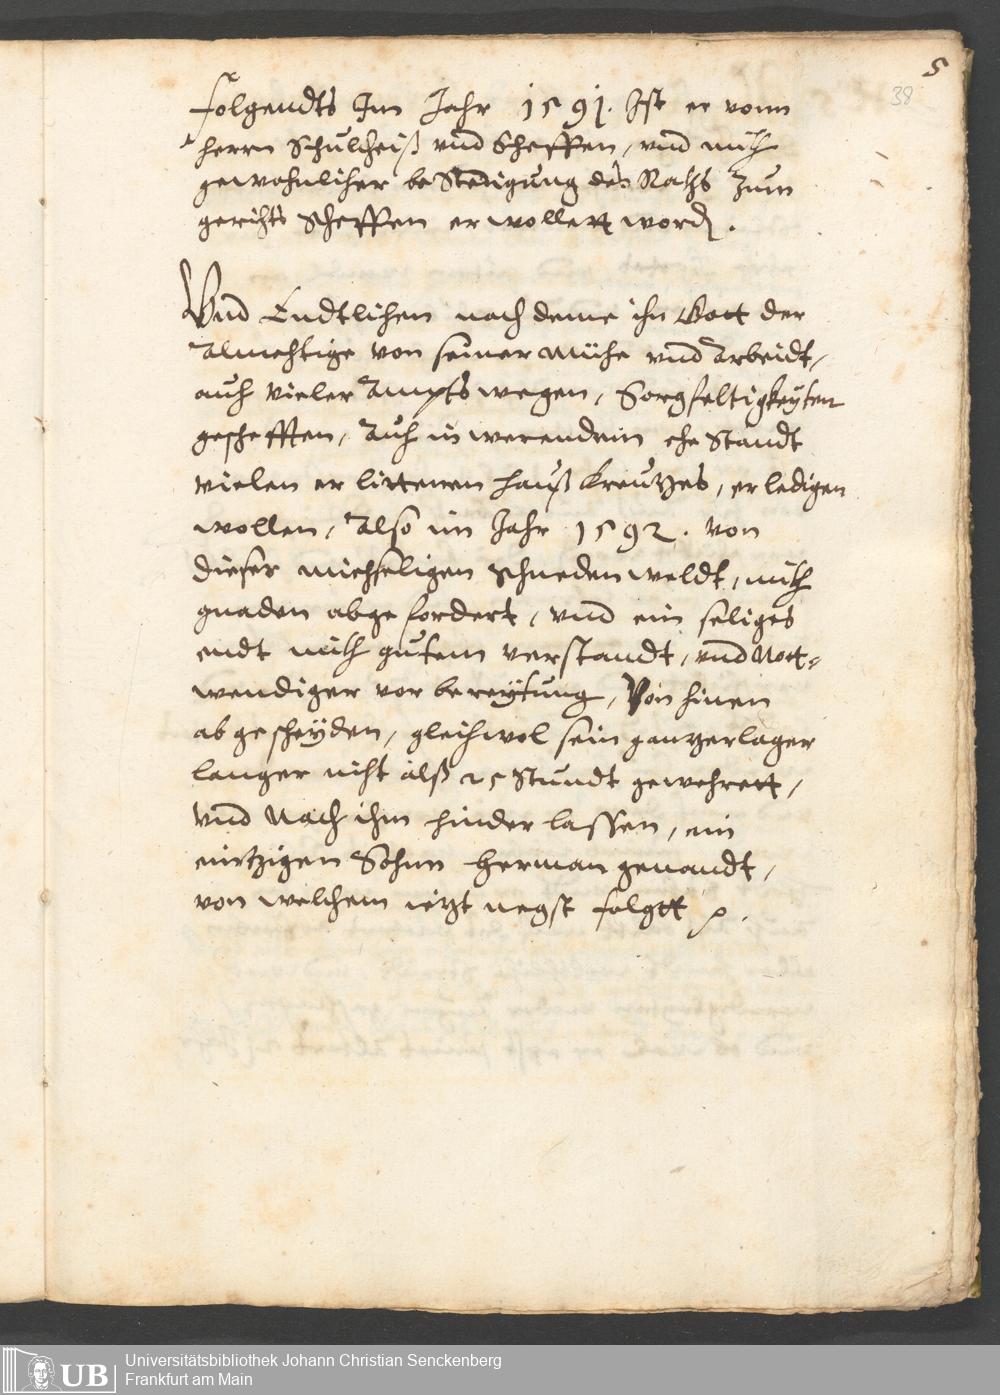 5
38
folgendts Im Jahr 1591. Ist er vonn
herrn Schultheiß vnd Scheffen, vnd mith
gewohnlicher bestedigung des Raths zum
gerichts Scheffen erwollett word.
Vnd Endtlichen nach deme ihn Gott der
Almechtige von seiner mühe vnd Arbeidt,
auch vieler Ampts wegen, Sorgfeltigkeyten
geschefften, Auch in werendem ehe Standt
vielen erlittenen hauß kreutzes, erledigen
wollen, Also im Jahr 1592. von
dieser miehseligen schneden weldt, mith
gnaden abgefordert, vnd ein seliges
endt mith gutem verstandt, vnd Nott-
wendiger vorbereytung, Von hinen
abgescheyden, gleichwol sein gantzer lager
lenger nicht alß 25 Stundt gewehrett,
vnd Nach ihm hinder lassen, ein
eintzigen Sohnn Herman genandt,
von welchem ietzt negst folgtt
UB
Universitätsbibliothek Johann Christian Senckenberg
Frankfurt am Main